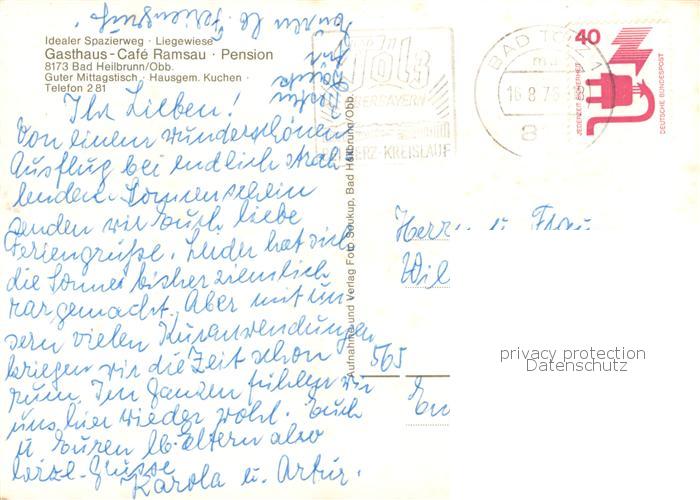 Idealer Spazierweg · Liegewiese
Gasthaus - Café Ramsau · Pension
8173 Bad Heilbrunn/Obb.
Guter Mittagstisch · Hausgem. Kuchen ·
Telefon 2 81
Ihr Lieben!
Von einem wunderschönen
Ausflug bei endlich strah
lendem Sonnenschein
senden wir Euch liebe
Feriengrüße. Leider hat sich
die Sonne bisher ziemlich
rargemacht. Aber mit un-
sern vielen Kuranwendungen
kriegen wir die Zeit schon
rum. Im Ganzen fühlen wir
uns hier wieder wohl. Euch
u. Euren lb. Eltern also
herzl. Grüsse
Karola u. Artur.
Aufnahme und Verlag Foto Soukup, Bad Heilbrunn/Obb.
BAD TÖLZ 1
16.8.76
HERZ-KREISLAUF
40
JEDERZEIT SICHERHEIT
DEUTSCHE BUNDESPOST
Herr u. Frau
Wil
565
privacy protection
Datenschutz